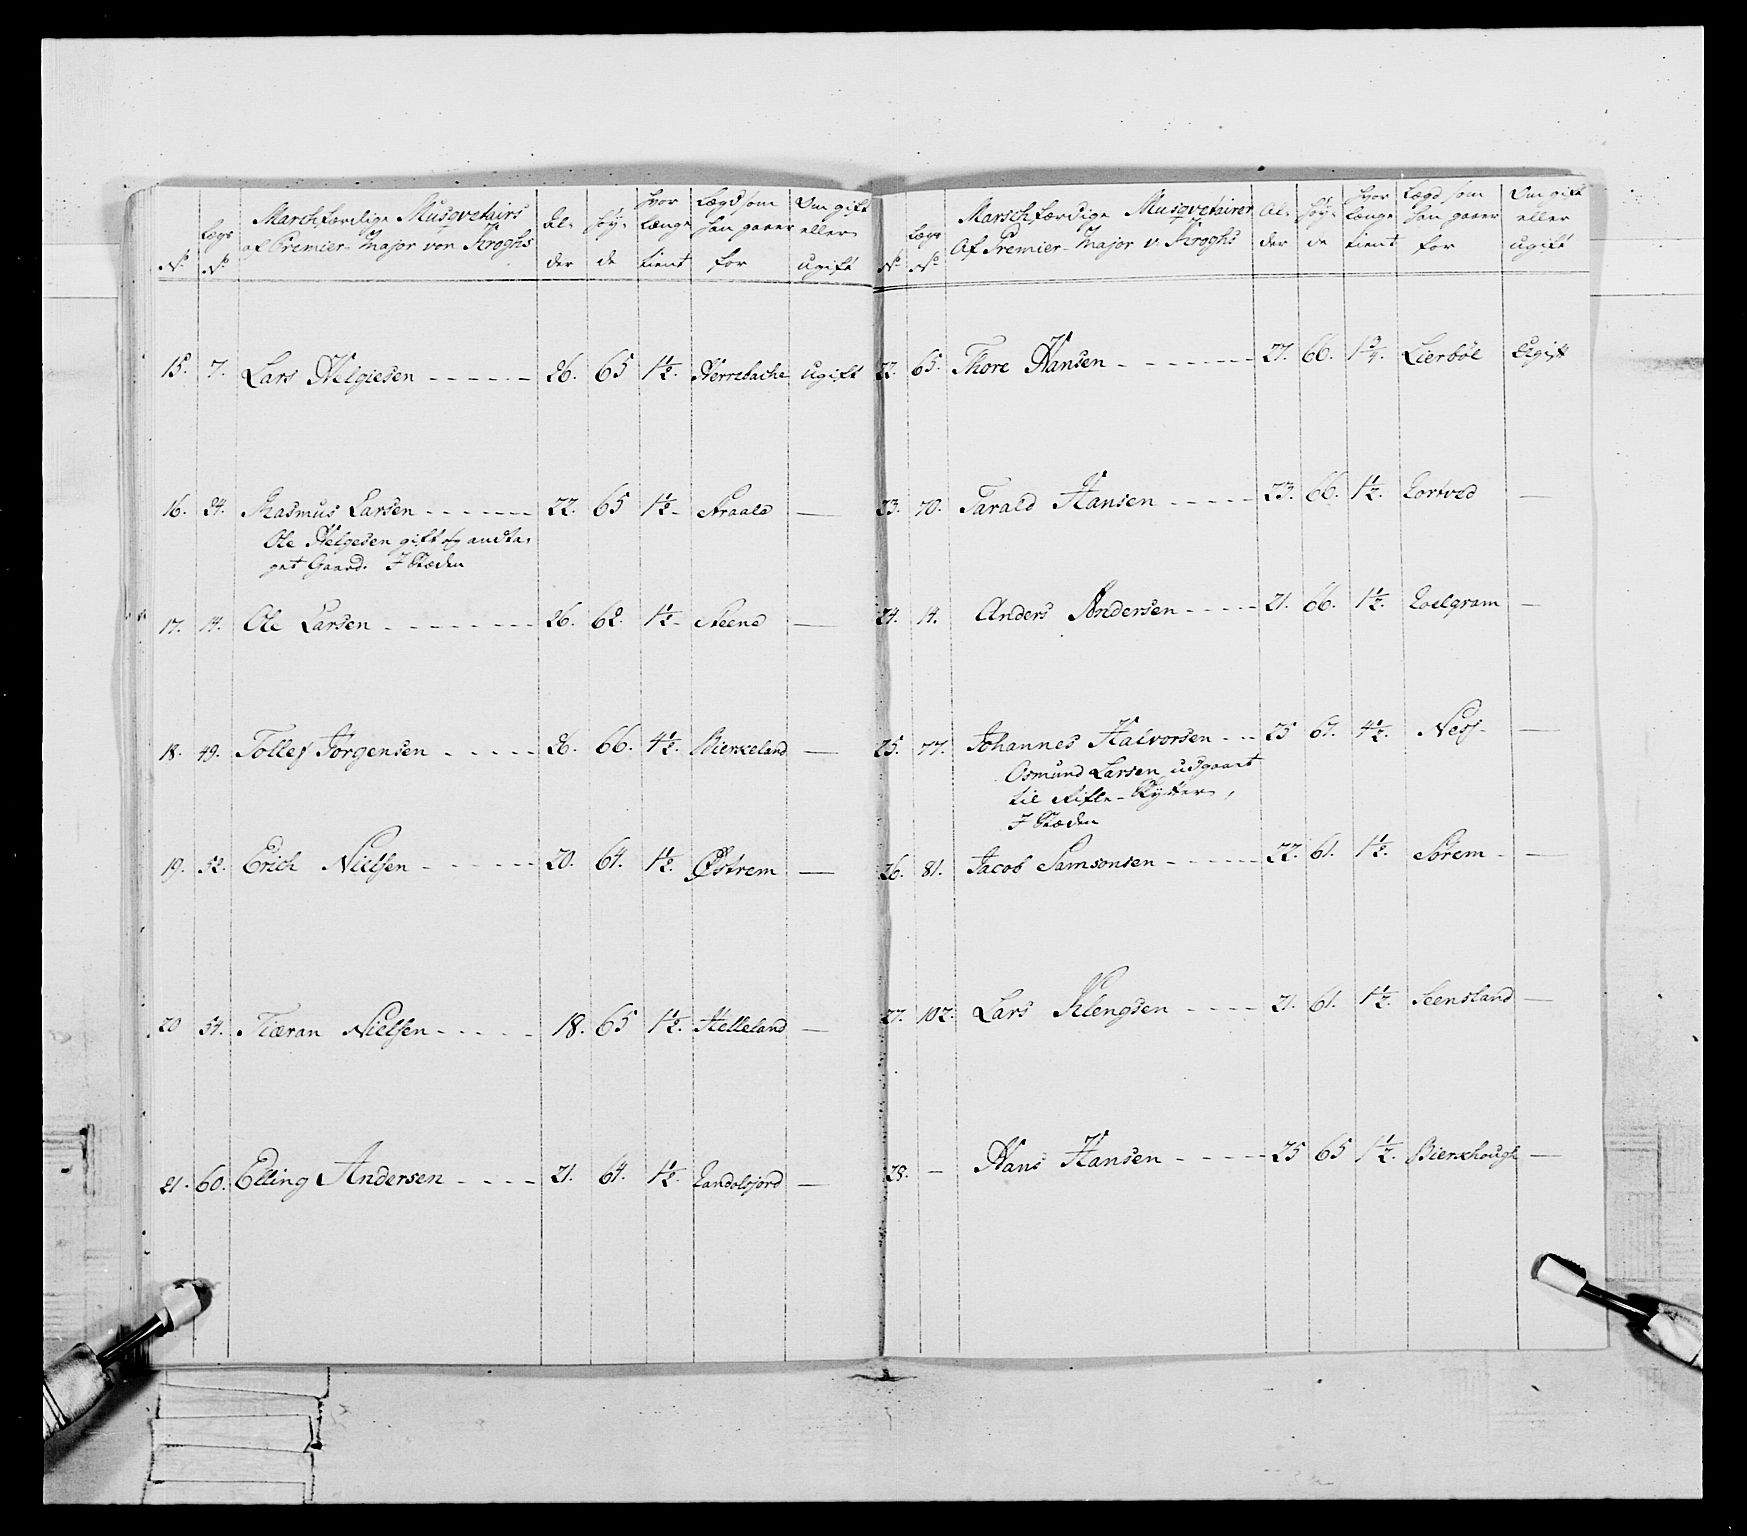 No
Lægs No
Marchfærdige Musqvetairs
af Premier-Major von Kroghs
Al-
der
Höy-
de
hvor
længe
tient
Lægd som
han gaaer
for
Om gift
eller
ugift
15. 7. Lars Helgiesen - - - - - 26. 65 1½. Herrebache ugift
16. 24. Rasmus Larsen - - - - - - 22. 65 1½. Araald —
Ole Helgesen gift og andta-
get Gaard. I Stæden
17. 14. Ole Larsen - - - - - - - 26. 62. 1½. Steene —
18. 49. Tollef Jörgensen - - - - - 26. 66. 4½. Bierkeland —
19. 52. Erich Nielsen - - - - - - 20. 64. 1½. Østrem —
20 54. Tiæran Nielsen - - - - - 18. 65 1½. Helleland —
21. 60. Elling Andersen - - - - 21. 64. 1½. Tandolsjord —
No
Lægs No
Marschfærdige Musqvetairer
Af Premier-Major v. Kroghs
Al-
der
Höy-
de
hvor
længe
tient
Lægd som
han gaaer
for
Om gift
eller
ugift
22. 65. Thore Hansen - - - - - - - 27. 66. 1¾. Lierböe Ugift
23. 70. Tarald Hansen - - - - - 23. 66. 1½. Tortved —
24. 14. Anders Andersen - - - - - 21. 66. 1½. Toelgram —
25. 77. Johannes Halvorsen - - - 25 67. 4½. Ness —
Osmund Larsen udgaaet
til Rifle-Skytter,
I Stæden
26. 81. Jacob Samsonsen - - - - - - 22. 61. 1½. Sörem - —
27. 102. Lars Klengsen - - - - 21. 61. 1½. Seensland —
28. — Hans Hansen - - - - - 25 65 1½. Bierkhough —